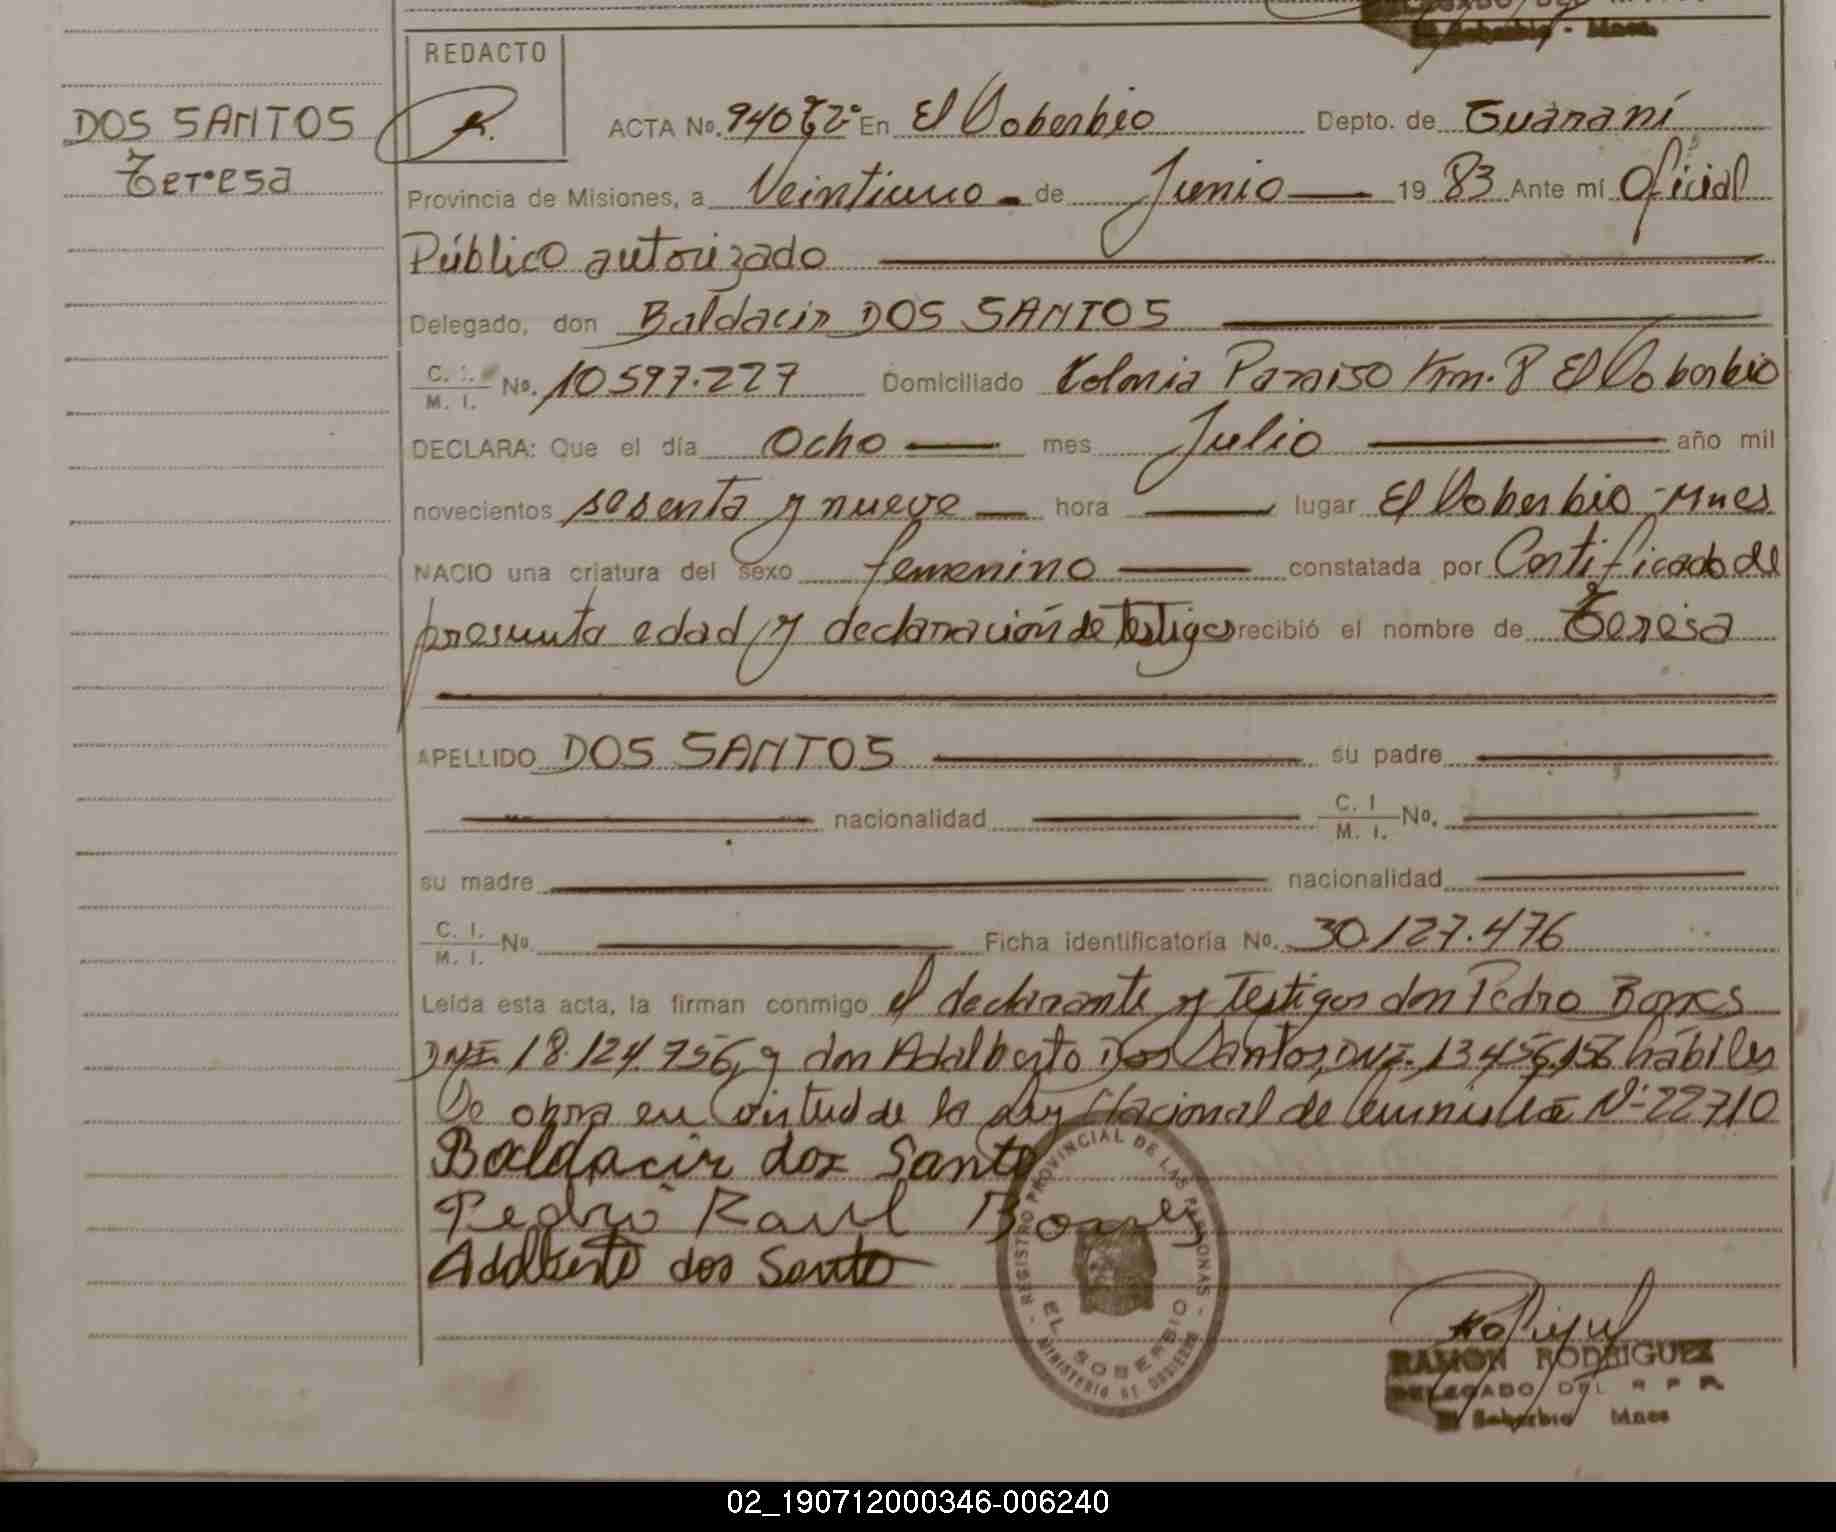 DOS SANTOS
Teresa
REDACTO
ACTA No. 940 Tº2º En El Soberbio Depto. de Guaraní
Provincia de Misiones, a Veintiuno de Junio 19 83 Ante mí Oficial
Público autorizado
Delegado, don Baldacir DOS SANTOS
C. I. / M. I. No. 10597.227 Domiciliado Colonia Paraiso Km. 8 El Soberbio
DECLARA: Que el día Ocho mes Julio año mil
novecientos sesenta y nueve hora lugar El Soberbio - Mnes
NACIO una criatura del sexo femenino constatada por Certificado de
presunta edad y declaración de testigos recibió el nombre de Teresa
APELLIDO DOS SANTOS su padre
nacionalidad C. I / M. I. No.
su madre nacionalidad
C. I. / M. I. No. Ficha identificatoria No. 30.127.476
Leída esta acta, la firman conmigo el declarante y testigos don Pedro Bones
DNI. 18.124.756, y don Adalberto Dos Santos, DNI. 13.456.156 hábiles
Se obra en virtud de la Ley Nacional de Nº 22710
Baldacir dos Santo
Pedro Raul
Adalberto dos Santo
REGISTRO PROVINCIAL DE LAS PERSONAS - MINISTERIO DE GOBIERNO -
EL SOBERBIO
RAMON RODRIGUEZ
DELEGADO DEL R P P.
El Soberbio Mnes
02_190712000346-006240